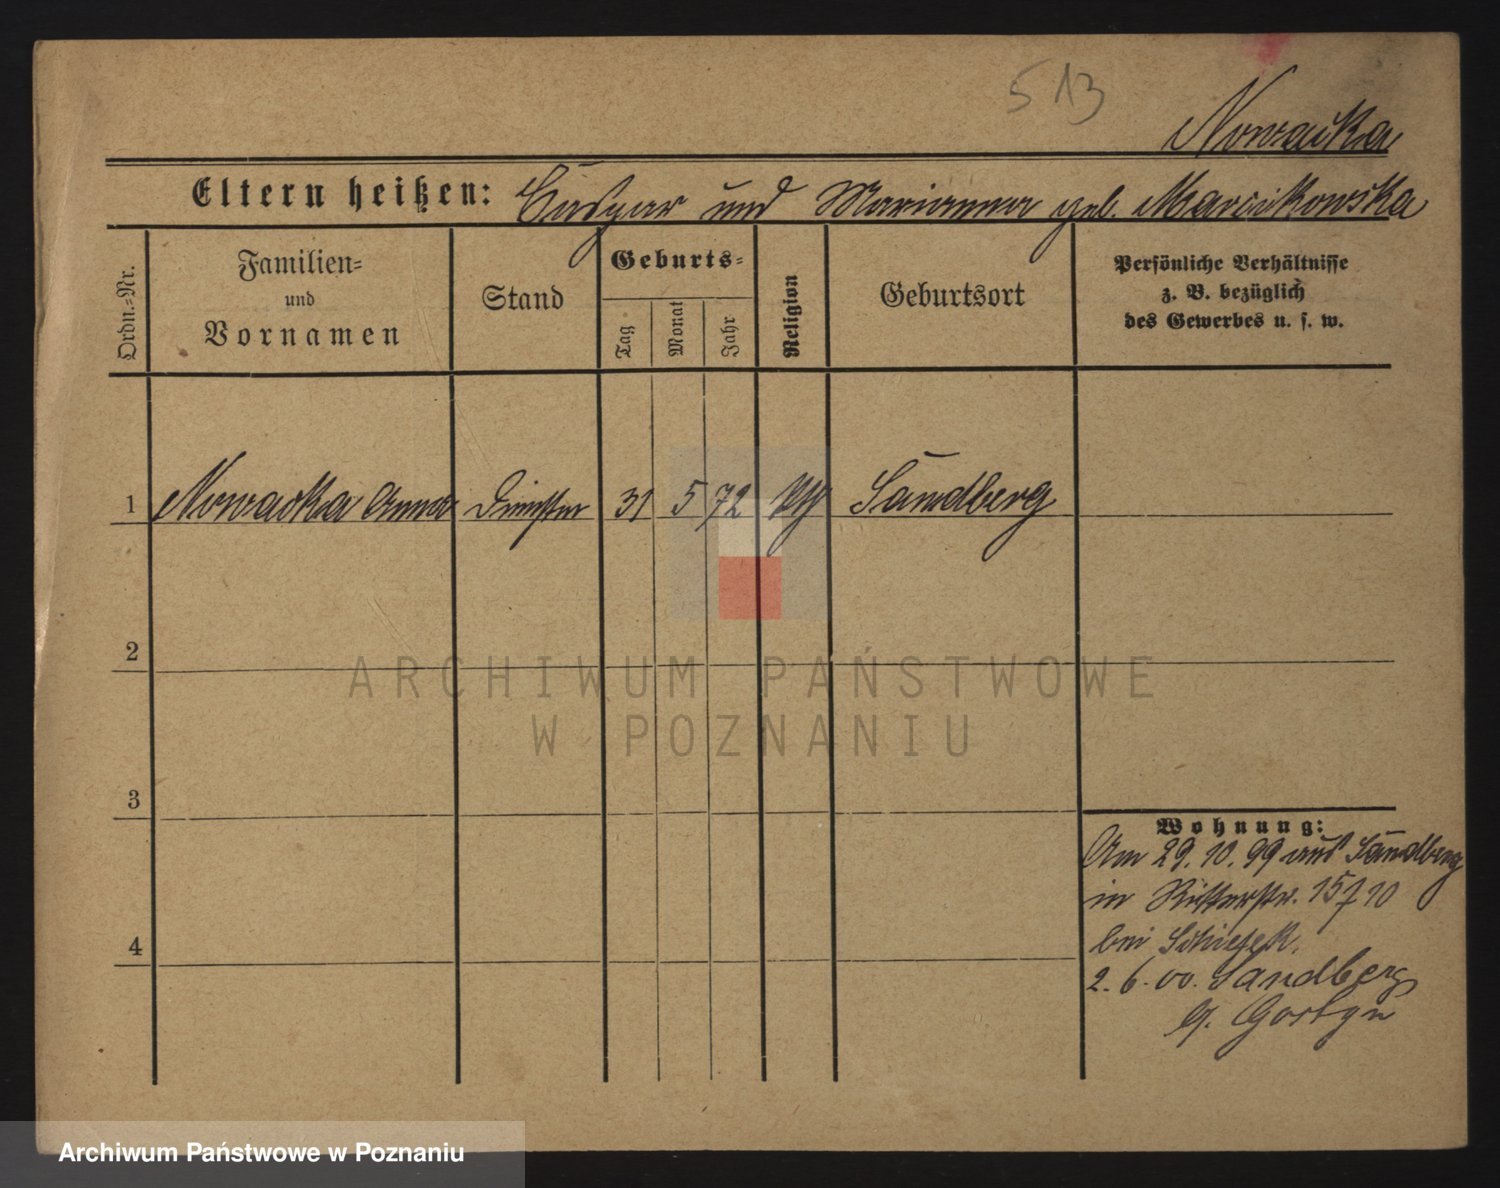 513
Nowacka
Eltern heißen: Caspar und Marianna geb. Marcikowska
Ordn.-Nr.
Familien-
und
Vornamen
Stand
Geburts-
Tag
Monat
Jahr
Religion
Geburtsort
Persönliche Verhältnisse
z. B. bezüglich
des Gewerbes u. s. w.
1 Nowacka Anna 31 5 72 Sandberg
2
3
4
Wohnung:
Am 29.10.99 aus Sandberg
in Ritterstr. 15
bei
2.6.00. Sandberg
Gostyn
ARCHIWUM PAŃSTWOWE
W POZNANIU
Archiwum Państwowe w Poznaniu